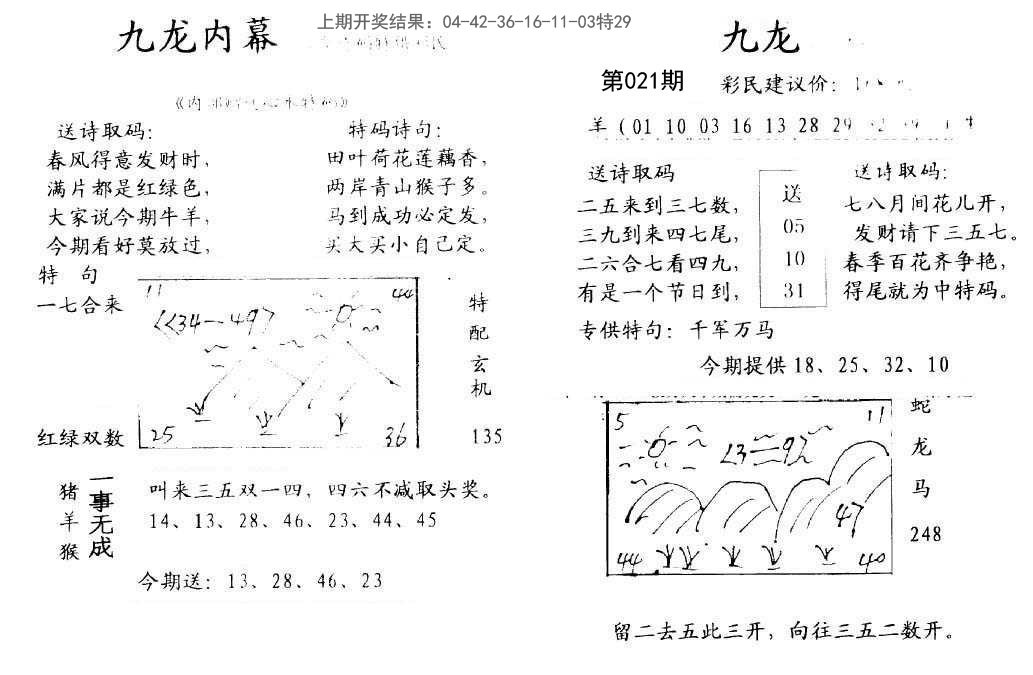 上期开奖结果：04-42-36-16-11-03特29
九龙内幕
送诗取码：
春风得意发财时，
满片都是红绿色，
大家说今期牛羊，
今期看好莫放过，
特码诗句：
田叶荷花莲藕香，
两岸青山猴子多。
马到成功必定发，
买大买小自己定。
特 句
一七合来
红绿双数
11
44
<<34—49>
25
36
特
配
玄
机
135
猪
羊
猴
一事无成
叫来三五双一四，四六不减取头奖。
14、13、28、46、23、44、45
今期送：13、28、46、23
九龙
第021期
彩民建议价：
羊（01 10 03 16 13 28 29
送诗取码
二五来到三七数，
三九到来四七尾，
二六合七看四九，
有是一个节日到，
送
05
10
31
送诗取码：
七八月间花儿开，
发财请下三五七。
春季百花齐争艳，
得尾就为中特码。
专供特句：千军万马
今期提供 18、25、32、10
5
11
47
44
40
蛇
龙
马
248
留二去五此三开，向往三五二数开。